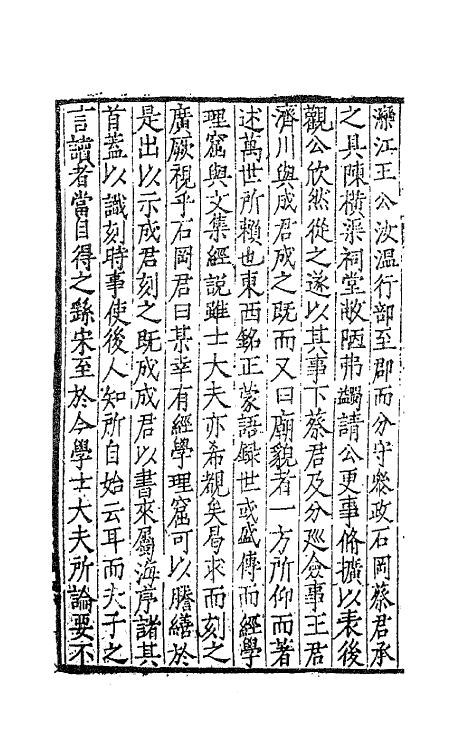 濼江王公汝温行部至郡而分守叅政石岡蔡君承
之具陳橫渠祠堂敝陋弗蠲請公更事脩擴以表後
觀公欣然從之遂以其事下蔡君及分廵僉事王君
濟川與成君成之既而又曰廟貌者一方所仰而著
述萬世所賴也東西銘正蒙語録世或盛傳而經學
理窟與文集經説雖士大夫亦希覩矣曷求而刻之
廣厥視乎石岡君曰某幸有經學理窟可以謄繕於
是出以示成君刻之既成成君以書來屬海序諸其
首盖以識刻時事使後人知所自始云耳而夫子之
言讀者當自得之繇宋至於今學士大夫所論要不